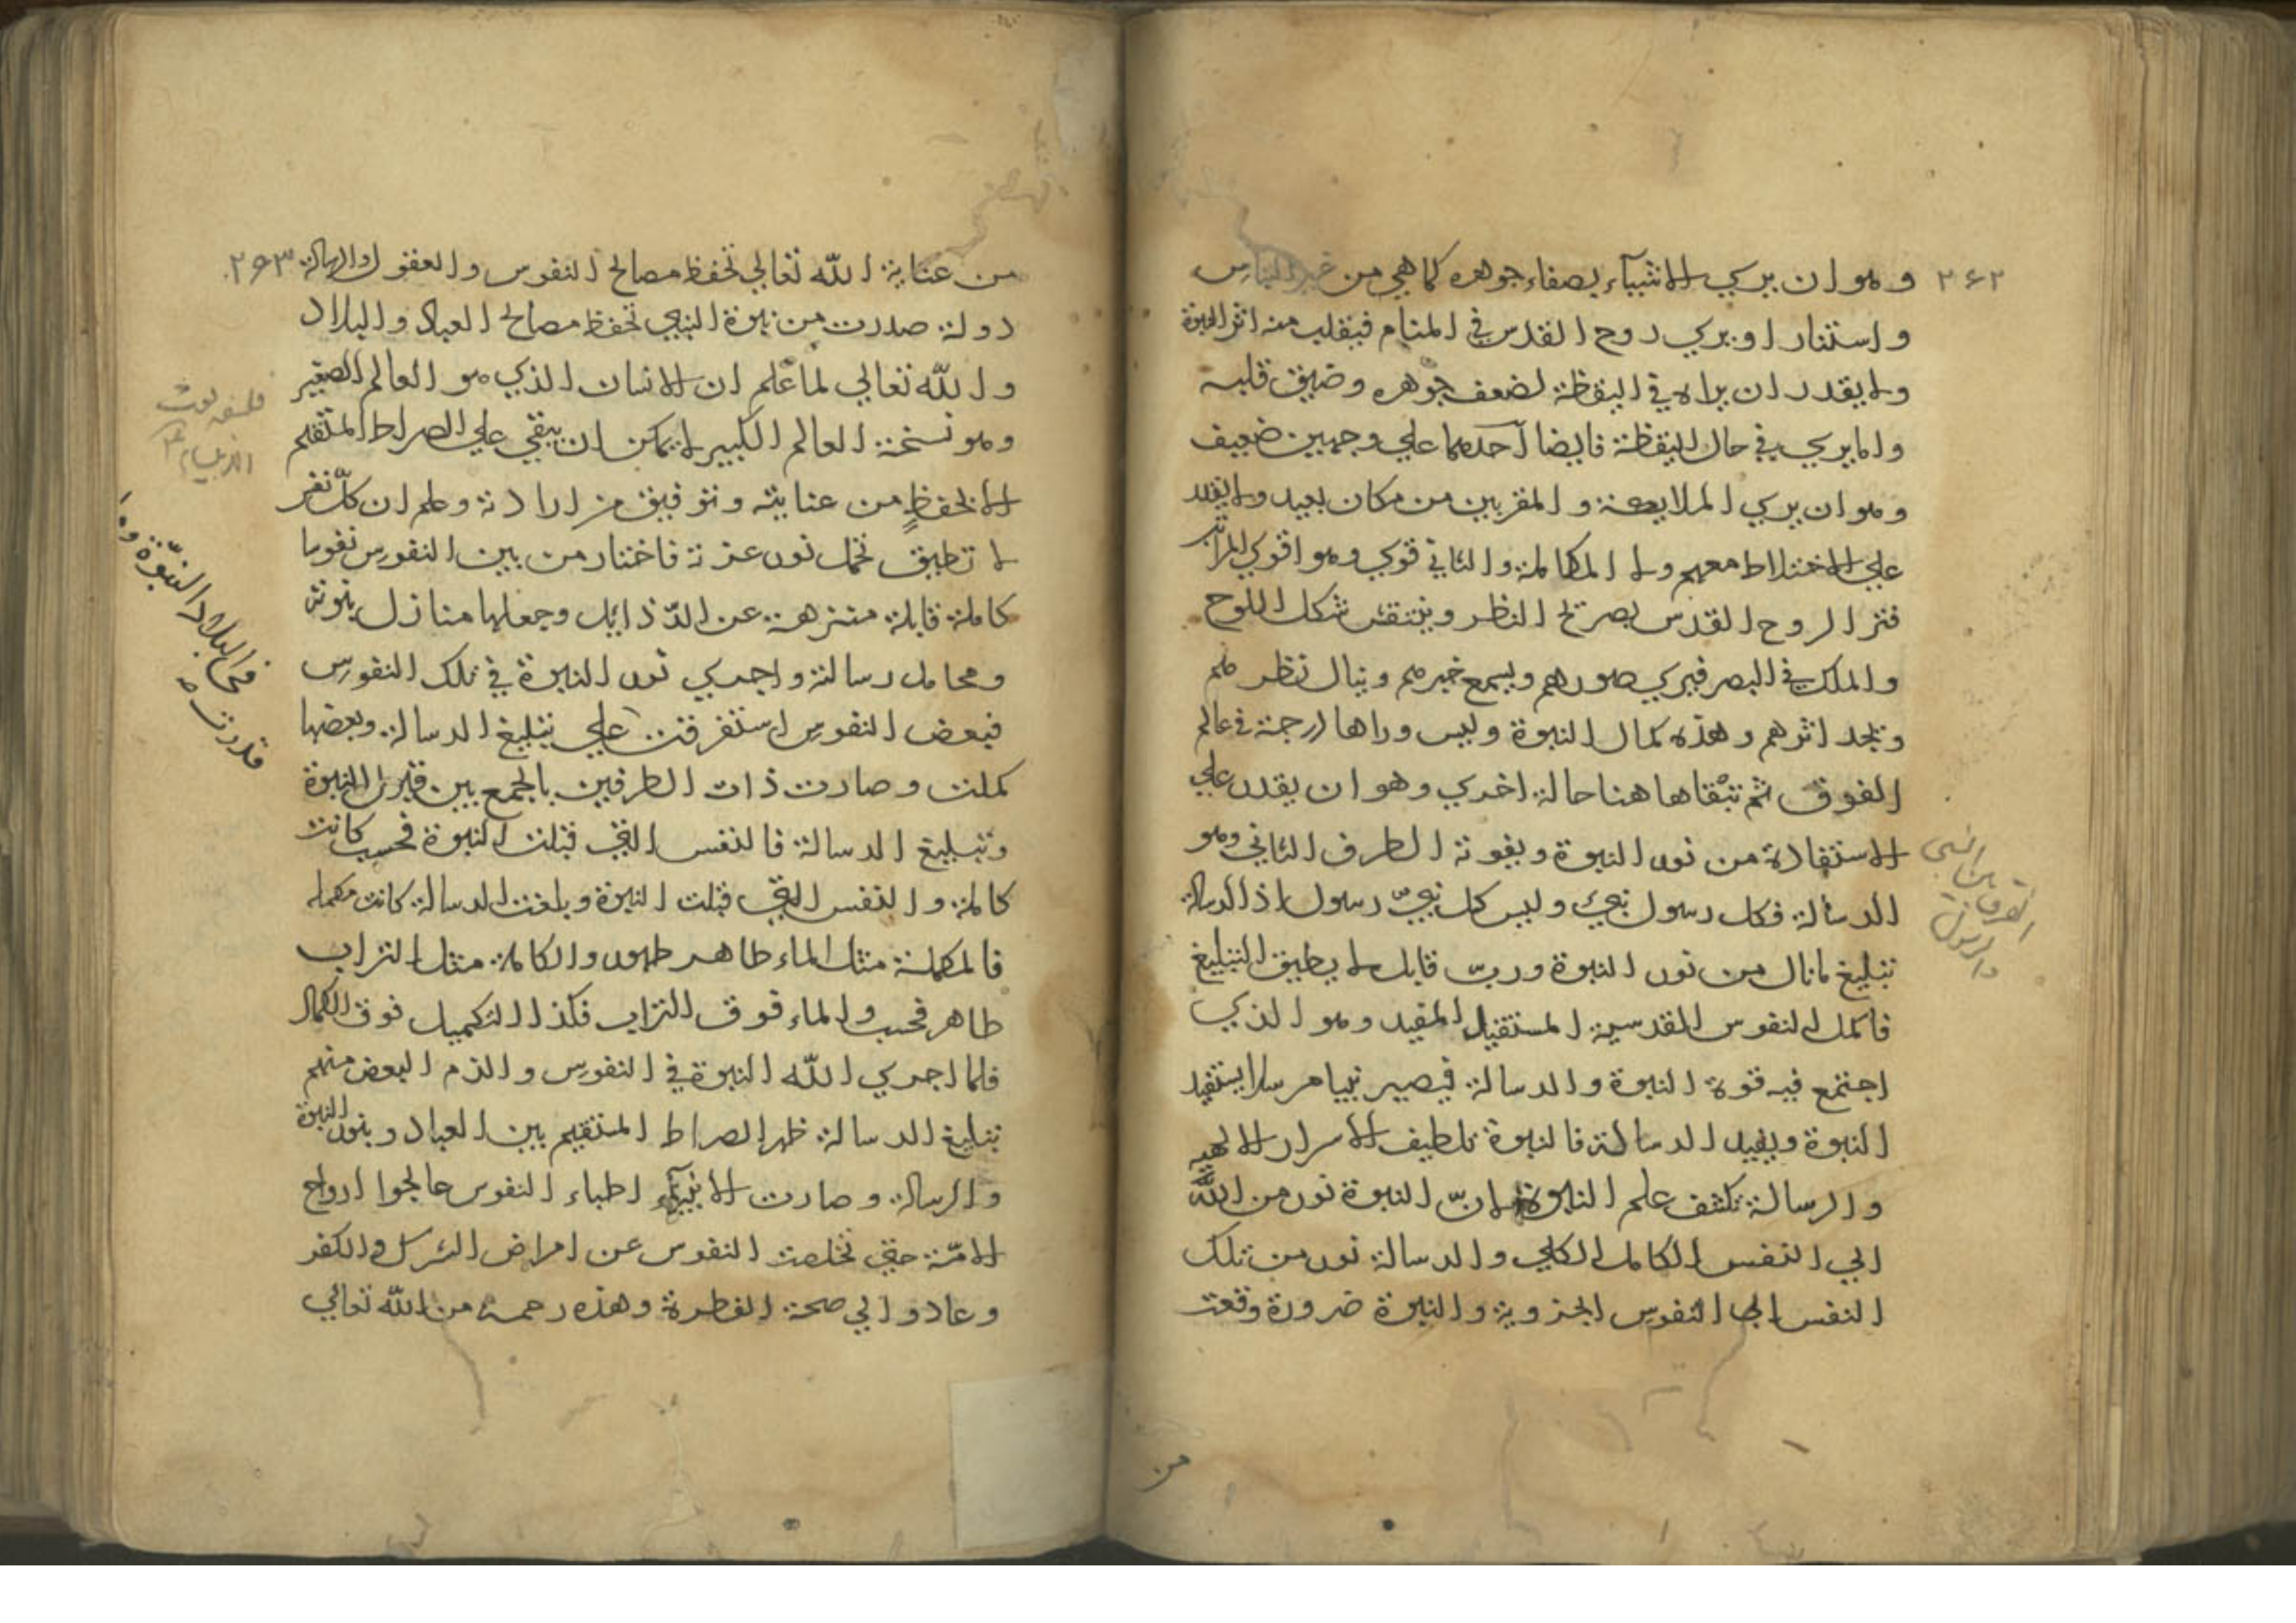 ٢٦٢
وهو ان يري الاشياء بصفاء جوهره كما هي من غير التباس
واستنار او يري روح القدس في المنام فيقلب منه اثر النبوة
ولا يقدر ان يراه في اليقظة لضعف جوهره وضيق قلبه
واما يري في حال اليقظة فايضا احدهما علي وجهين ضعيف
وهو ان يري الملايكة والمقربين من مكان بعيد ولا يقدر
علي الاختلاط معهم ولا المكالمة والثاني قوي وهو اقوي المراتب
الروح القدس بصريح النظر وينتقش شكل اللوح
والملك في البصر فيري صورهم ويسمع خبرهم وينال نظرهم
ويجد اثرهم وهذه كمال النبوة وليس وراها درجة في عالم
الفوق ثم تبقاها هنا حالة اخري وهو ان يقدر علي
الاستفادة من نور النبوة وبقوته الطرف الثاني وهو
الرسالة فكل رسول نبي وليس كل نبيّ رسول اذ الرسالة
تبليغ ما نال من نور النبوة وربّ قابل لا يطيق التبليغ
فاكمل النفوس القدسية المستقبل المفيد وهو الذي
اجتمع فيه قوة النبوة والرسالة فيصير نبيا مرسلا يستفيد
النبوة ويفيد الرسالة فالنبوة تلطيف الاسرار الالهية
والرسالة تكشف علم النبوة لانّ النبوة نور من الله
الي النفس الكامل الكلي والرسالة نور من تلك
النفس الي النفوس الجزوية والنبوة ضرورة وقعت
من
الفرق بين النبي
والرسول
٢٦٣
من عناية الله تعالي تحفظ مصالح النفوس والعقول والرسالة
دولة صدرت من نبوة النبي تحفظ مصالح العباد والبلاد
والله تعالي لما علم ان الانسان الذي هو العالم الصغير
وهو نسخة العالم الكبير لا يمكن ان يبقي علي الصراط المستقيم
الا بحفظٍ من عنايته وتوفيق من ارادته وعلم ان كلّ نفس
لا تطيق تحمل نور عزته فاختار من بين النفوس نفوسا
كاملة قابلة متنزهة عن الرّذايل وجعلها منازل نبوته
ومحامل رسالته واجري نور النبوة في تلك النفوس
فبعض النفوس استغرقت علي تبليغ الرسالة وبعضها
كملت وصارت ذات الطرفين بالجمع بين قبول النبوة
وتبليغ الرسالة فالنفس التي قبلت النبوة فحسب كانت
كاملة والنفس التي قبلت النبوة وبلغت الرسالة كانت مكملة
فالمكملة مثل الماء طاهر طهور والكاملة مثل التراب
طاهر فحسب والماء فوق التراب فكذا التكميل فوق الكمال
فلما اجري الله النبوة في النفوس والزم البعض منهم
تبليغ الرسالة ظهر الصراط المستقيم بين العباد وبنور النبوة
والرسالة وصارت الانبياء اطباء النفوس عالجوا ارواح
الامّة حتي تخلصت النفوس عن امراض الشرك والكفر
وعادوا الي صحة الفطرة وهذه رحمة من الله تعالي
فلسفه بعث
الانبياء
في البلاد النبوّة